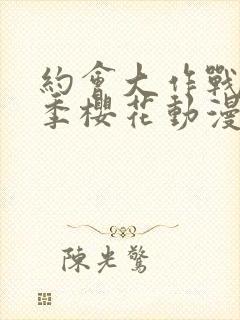 約會大作戰
季櫻花動漫
陳光驚